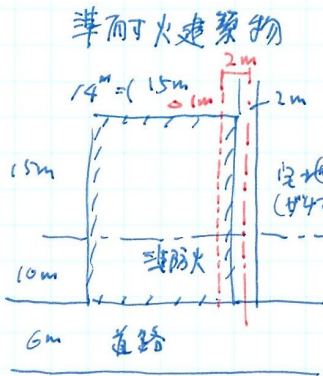 準耐火建築物
2m
14m=(15m
△1m
2m
15m
宅地
準防火
10m
6m 道路